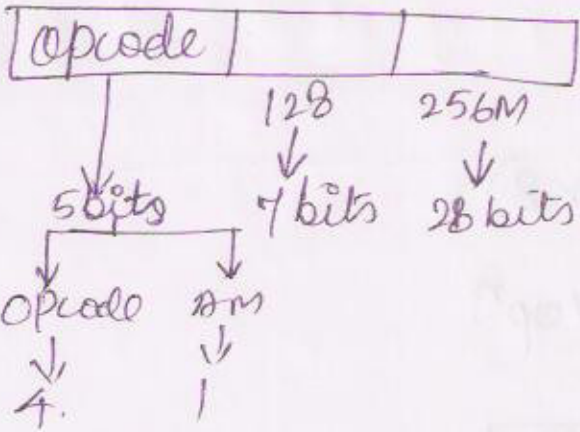 opcode
128 256M
5bits 7 bits 28 bits
opcode AM
4. 1